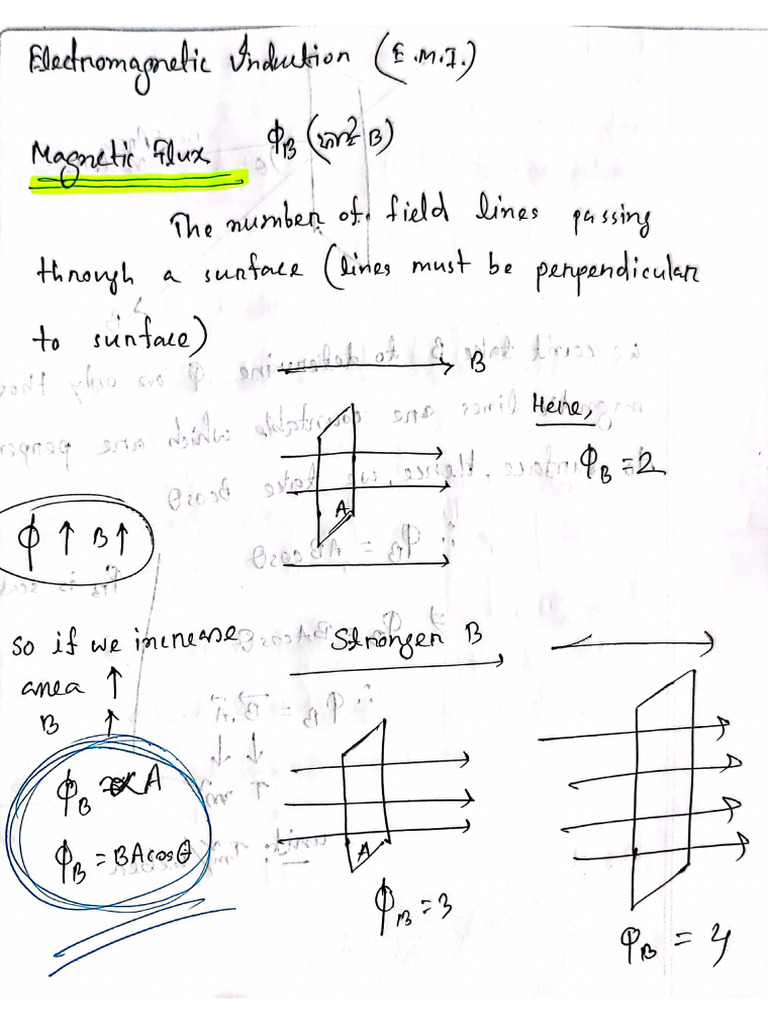 Electromagnetic Induction (E.M.I.)
Magnetic Flux Φ_B ( B)
The number of field lines passing
through a surface (lines must be perpendicular
to surface)
B
Here,
Φ_B = 2
A
Φ ↑ B ↑
So if we increase
area ↑
B ↑
Stronger B
Φ_B ∝ A
Φ_B = BAcosθ
A
Φ_B = 3
Φ_B = 4